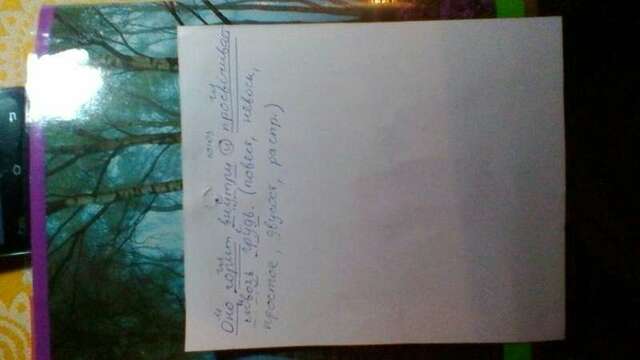 Оно горит внутри и просвечивает
сквозь грудь. (повест, невоскл,
простое, двусост, распр.)